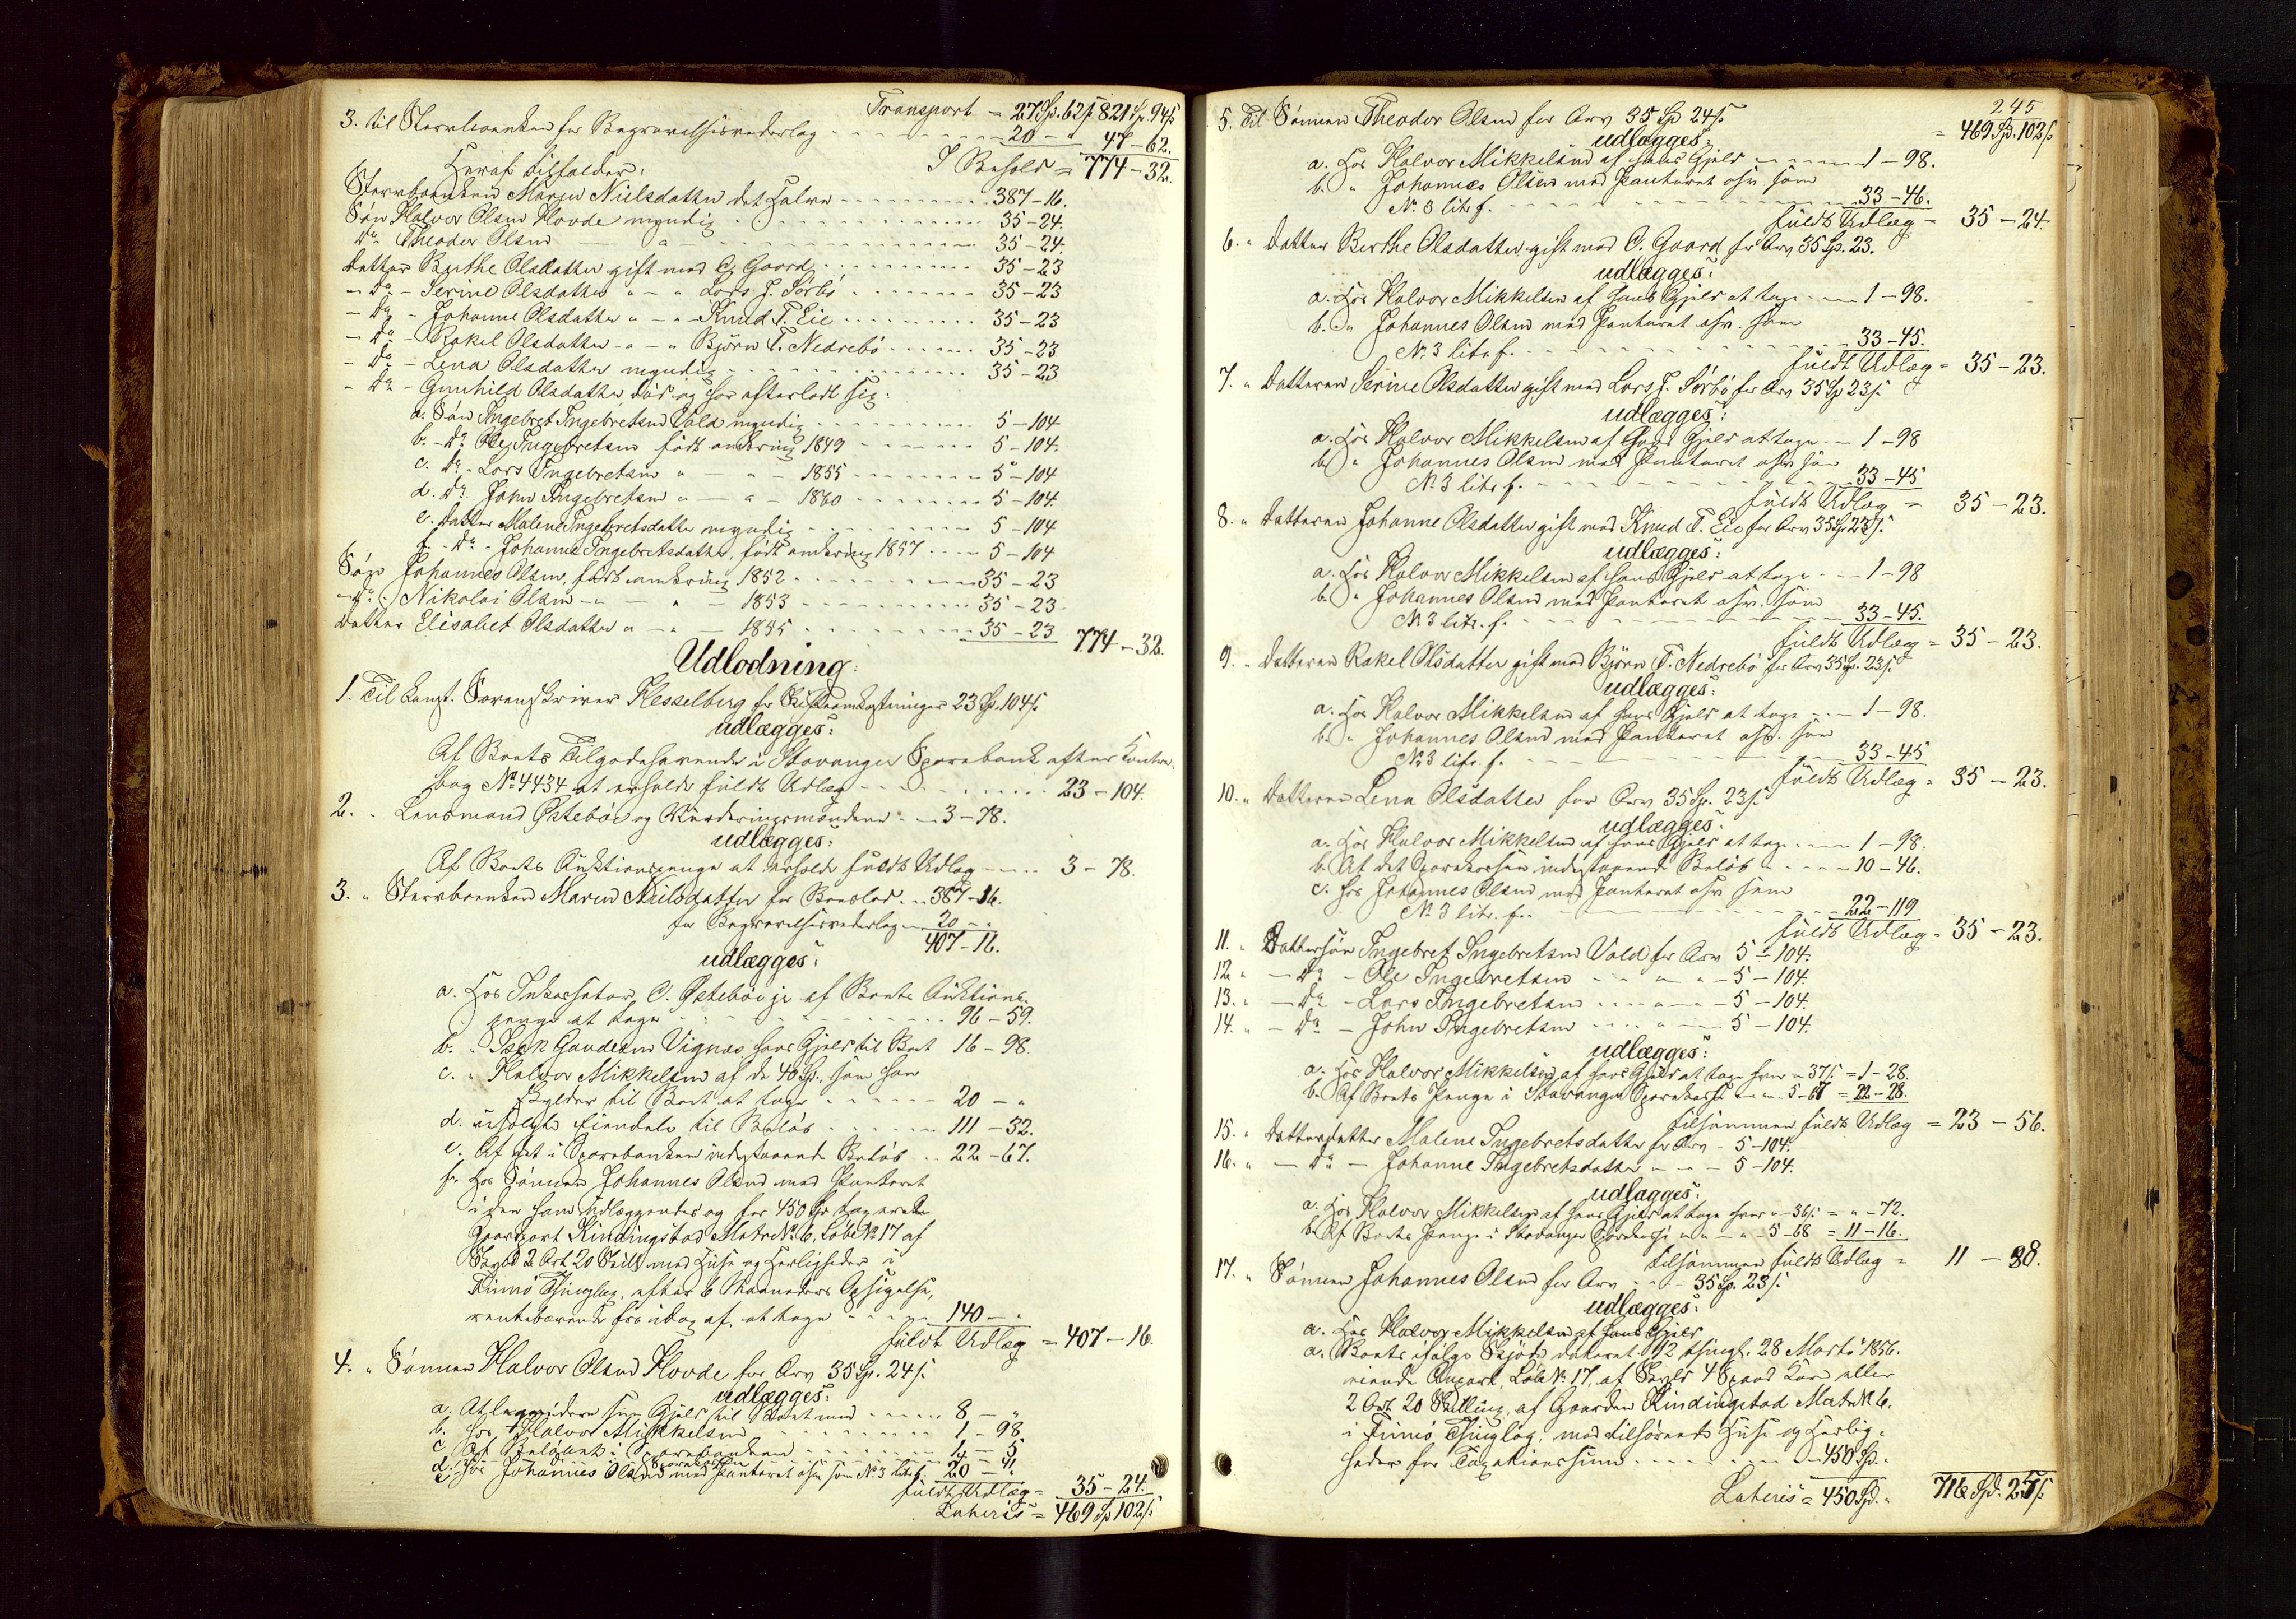 Transport = 27 Sp. 62 s. 821 Sp. 94 s.
3. til Stervboenken for Begravelsesvederlag - - - 20 - " 47 - 62.
I Behold = 774 - 32.
Heraf tilfalder:
Stervboenken Maren Nielsdatter det Halve - - - 387 - 16.
Søn Halvor Olsen Hovde myndig - - - 35 - 24.
" Do Theodor Olsen - " - - - 35 - 24.
Datter Berthe Olsdatter gift med C. Gaard - - - 35 - 23
- Do - Serine Olsdatter " - " Lars J. Sørbø - - - 35 - 23
- Do - Johanne Olsdatter " - " Knud T. Eie - - - 35 - 23
- Do - Rakel Olsdatter - " - " Bjørn T. Nedrebø - - - 35 - 23
- Do - Lena Olsdatter myndig - - - 35 - 23
- Do - Gunhild Olsdatter, død og har efterladt sig:
a. Søn Ingebret Ingebretsen Vold myndig - - - 5 - 104
b. - Do Ole Ingebretsen født omkring 1849 - - - 5 - 104.
c. Do - Lars Ingebretsen " - " - 1855 - - - 5 - 104
d. Do. John Ingebretsen " - " - 1860 - - - 5 - 104.
e. Datter Malene Ingebretsdatter myndig - - - 5 - 104
f. - Do - Johanne Ingebretsdatter, født omkring 1857 - - - 5 - 104
Søn Johannes Olsen, født omkring 1852 - - - 35 - 23
- Do. Nikolai Olsen - " - " - 1853 - - - 35 - 23
Datter Elisabet Olsdatter " - " - 1855 - - - 35 - 23 774 - 32.
Udlodning:
1. Til const. Sorenskriver Hesselberg for Skifteomkostninger 23 Sp. 104 s.
udlægges:
Af Boets Tilgodehavende i Stavanger Sparebank efter Contra-
bog No 4434 at erholde fuldt Udlæg - - - 23 - 104.
2. " Lensmand Østebøe og Vurderingsmændene - - 3 - 78.
udlægges:
Af Boets Auktionspenge at erholde fuldt Udlæg - - - 3 - 78.
3. " Stervboenken Maren Nielsdatter for Boeslod - - 387 - 16.
for Begravelsesvederlag - - 20 - "
407 - 16.
udlægges:
a. Hos Inkassator C. Østebøe jr af Boets Auktions-
penge at tage - - - 96 - 59.
b. " Isak Gaudesen Vignæs hans Gjeld til Boet 16 - 98.
c. " Halvor Mikkelsen af de 40 Sp., som han
skylder til Boet at tage - - - 20 - "
d. usolgte Eiendele til Beløb - - - 111 - 32.
e. Af det i Sparebanken indestaaende Beløb - - 22 - 67.
f. Hos Sønnen Johannes Olsen med Panteret
i den ham udlæggendes og for 450 Sp taxerede
Gaardpart Rindingstad Matr No 6, Løbe No 17 af
Skyld 2 Ort 20 Skill med Huse og Herligheder i
Finnø Thinglag, efter 6 Maaneders Opsigelse,
rentebærende fra idag af, at tage - - - 140 - "
fuldt Udlæg = 407 - 16.
4. " Sønnen Halvor Olsen Hovde for Arv 35 Sp. 24 s.
udlægges:
a. At liqvidere sin Gjeld til Boet med - - - 8 - "
b. hos Halvor Mikkelsen - - - 1 - 98
c. Af Beløbet i Sparebanken - - - 5
d. hos Johannes Olsen med Panteret osv. som No 3 litr. f. 20 - 41.
fuldt Udlæg = 35 - 24.
Lateris = 469 Sp 102 s.
245
= 469 Sp. 102 s.
5. Til Sønnen Theodor Olsen for Arv 35 Sp 24 s.
udlægges:
a. Hos Halvor Mikkelsen af hans Gjeld - - - 1 - 98.
b. " Johannes Olsen med Panteret osv. som
No. 3 litr f. - - - 33 - 46.
fuldt Udlæg = 35 - 24.
6. " Datter Berthe Olsdatter gift med C. Gaard for Arv 35 Sp. 23.
udlægges:
a. Hos Halvor Mikkelsen af hans Gjeld at tage - - - 1 - 98.
b. " Johannes Olsen med Panteret osv. som
No. 3 litr f. - - - 33 - 45.
fuldt Udlæg = 35 - 23.
7. " Datteren Serine Olsdatter gift med Lars J. Sørbø for Arv 35 Sp 23 s.
udlægges:
a. Hos Halvor Mikkelsen af hans Gjeld at tage - - 1 - 98
b. " Johannes Olsen med Panteret osv. som
No. 3 litr f. - - - 33 - 45
fuldt Udlæg = 35 - 23.
8. " Datteren Johanne Olsdatter gift med Knud T. Eie for Arv 35 Sp 23 s.
udlægges:
a. Hos Halvor Mikkelsen af hans Gjeld at tage - - 1 - 98
b. " Johannes Olsen med Panteret osv. som
No 3 litr. f. - - - 33 - 45.
fuldt Udlæg = 35 - 23.
9. " Datteren Rakel Olsdatter gift med Bjørn T. Nedrebø for Arv 35 Sp. 23 s.
udlægges:
a. Hos Halvor Mikkelsen af hans Gjeld at tage - - 1 - 98.
b. " Johannes Olsen med Panteret osv. som
No 3 litr. f. - - - 33 - 45
fuldt Udlæg = 35 - 23.
10. " Datteren Lena Olsdatter for Arv 35 Sp. 23 s.
udlægges:
a. Hos Halvor Mikkelsen af hans Gjeld at tage - - - 1 - 98.
b. Af det i Sparekassen indestaaende Beløb - - - 10 - 46.
c. hos Johannes Olsen med Panteret osv. som
No 3 litr. f. - - - 22 - 119
fuldt Udlæg = 35 - 23.
11. " Dattersøn Ingebret Ingebretsen Vold for Arv 5 - 104.
12. " - Do - Ole Ingebretsen - - " - - 5 - 104.
13. " - Do - Lars Ingebretsen - - - " - - 5 - 104.
14. " - Do - John Ingebretsen - - - " - - 5 - 104.
udlægges:
a. Hos Halvor Mikkelsen af hans Gjeld at tage hver " 37 s. = 1 - 28.
b. Af Boets Penge i Stavanger Sparekasse - " - 5 - 67 = 22 - 28.
tilsammen fuldt Udlæg = 23 - 56.
15. " Datterdatter Malene Ingebretsdatter for Arv - 5 - 104.
16. " - Do - Johanne Ingebretsdatter - " - 5 - 104.
udlægges:
a. Hos Halvor Mikkelsen af hans Gjeld at tage hver " - 36 s. = " - 72.
b. Af Boets Penge i Stavanger Sparekasse " - " - 5 - 68 = 11 - 16.
tilsammen fuldt Udlæg = 11 - 88.
17. " Sønnen Johannes Olsen for Arv - - - 35 Sp. 23 s.
udlægges:
a. Hos Halvor Mikkelsen af hans Gjeld
a. Boets ifølge Skjøde dateret 12 thingl. 28 Marts 1856.
eiende Anpart, Løbe No 17, af Skyld 4 Spand Korn eller
2 Ort 20 Skilling, af Gaarden Rindingstad Matr No 6.
i Finnø Thinglag, med tilhørende Huse og Herlig-
heder for Taxationssum - - - 450 Sp. "
Lateris = 450 Sp. " 716 Sp. 25 s.